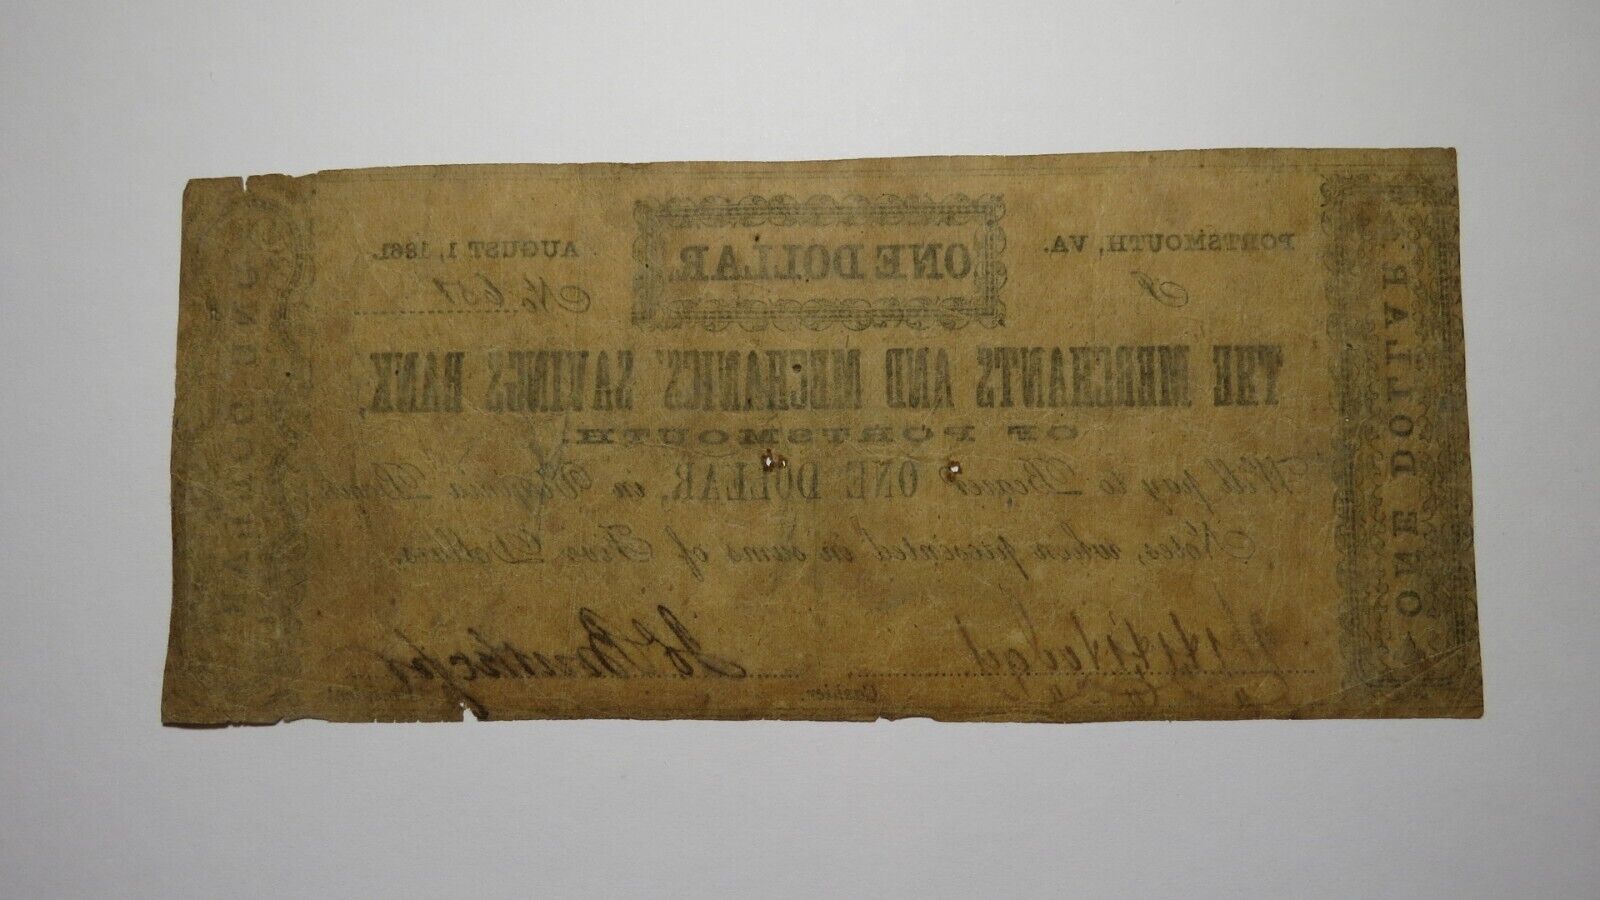 PORTSMOUTH, VA.
ONE DOLLAR.
AUGUST 1, 1861.
No. 651
THE MERCHANTS AND MECHANICS' SAVINGS BANK,
OF PORTSMOUTH.
Will pay to Bearer ONE DOLLAR, in Virginia Bank
Notes, when presented in sums of Five Dollars.
Cashier.
ONE DOLLAR